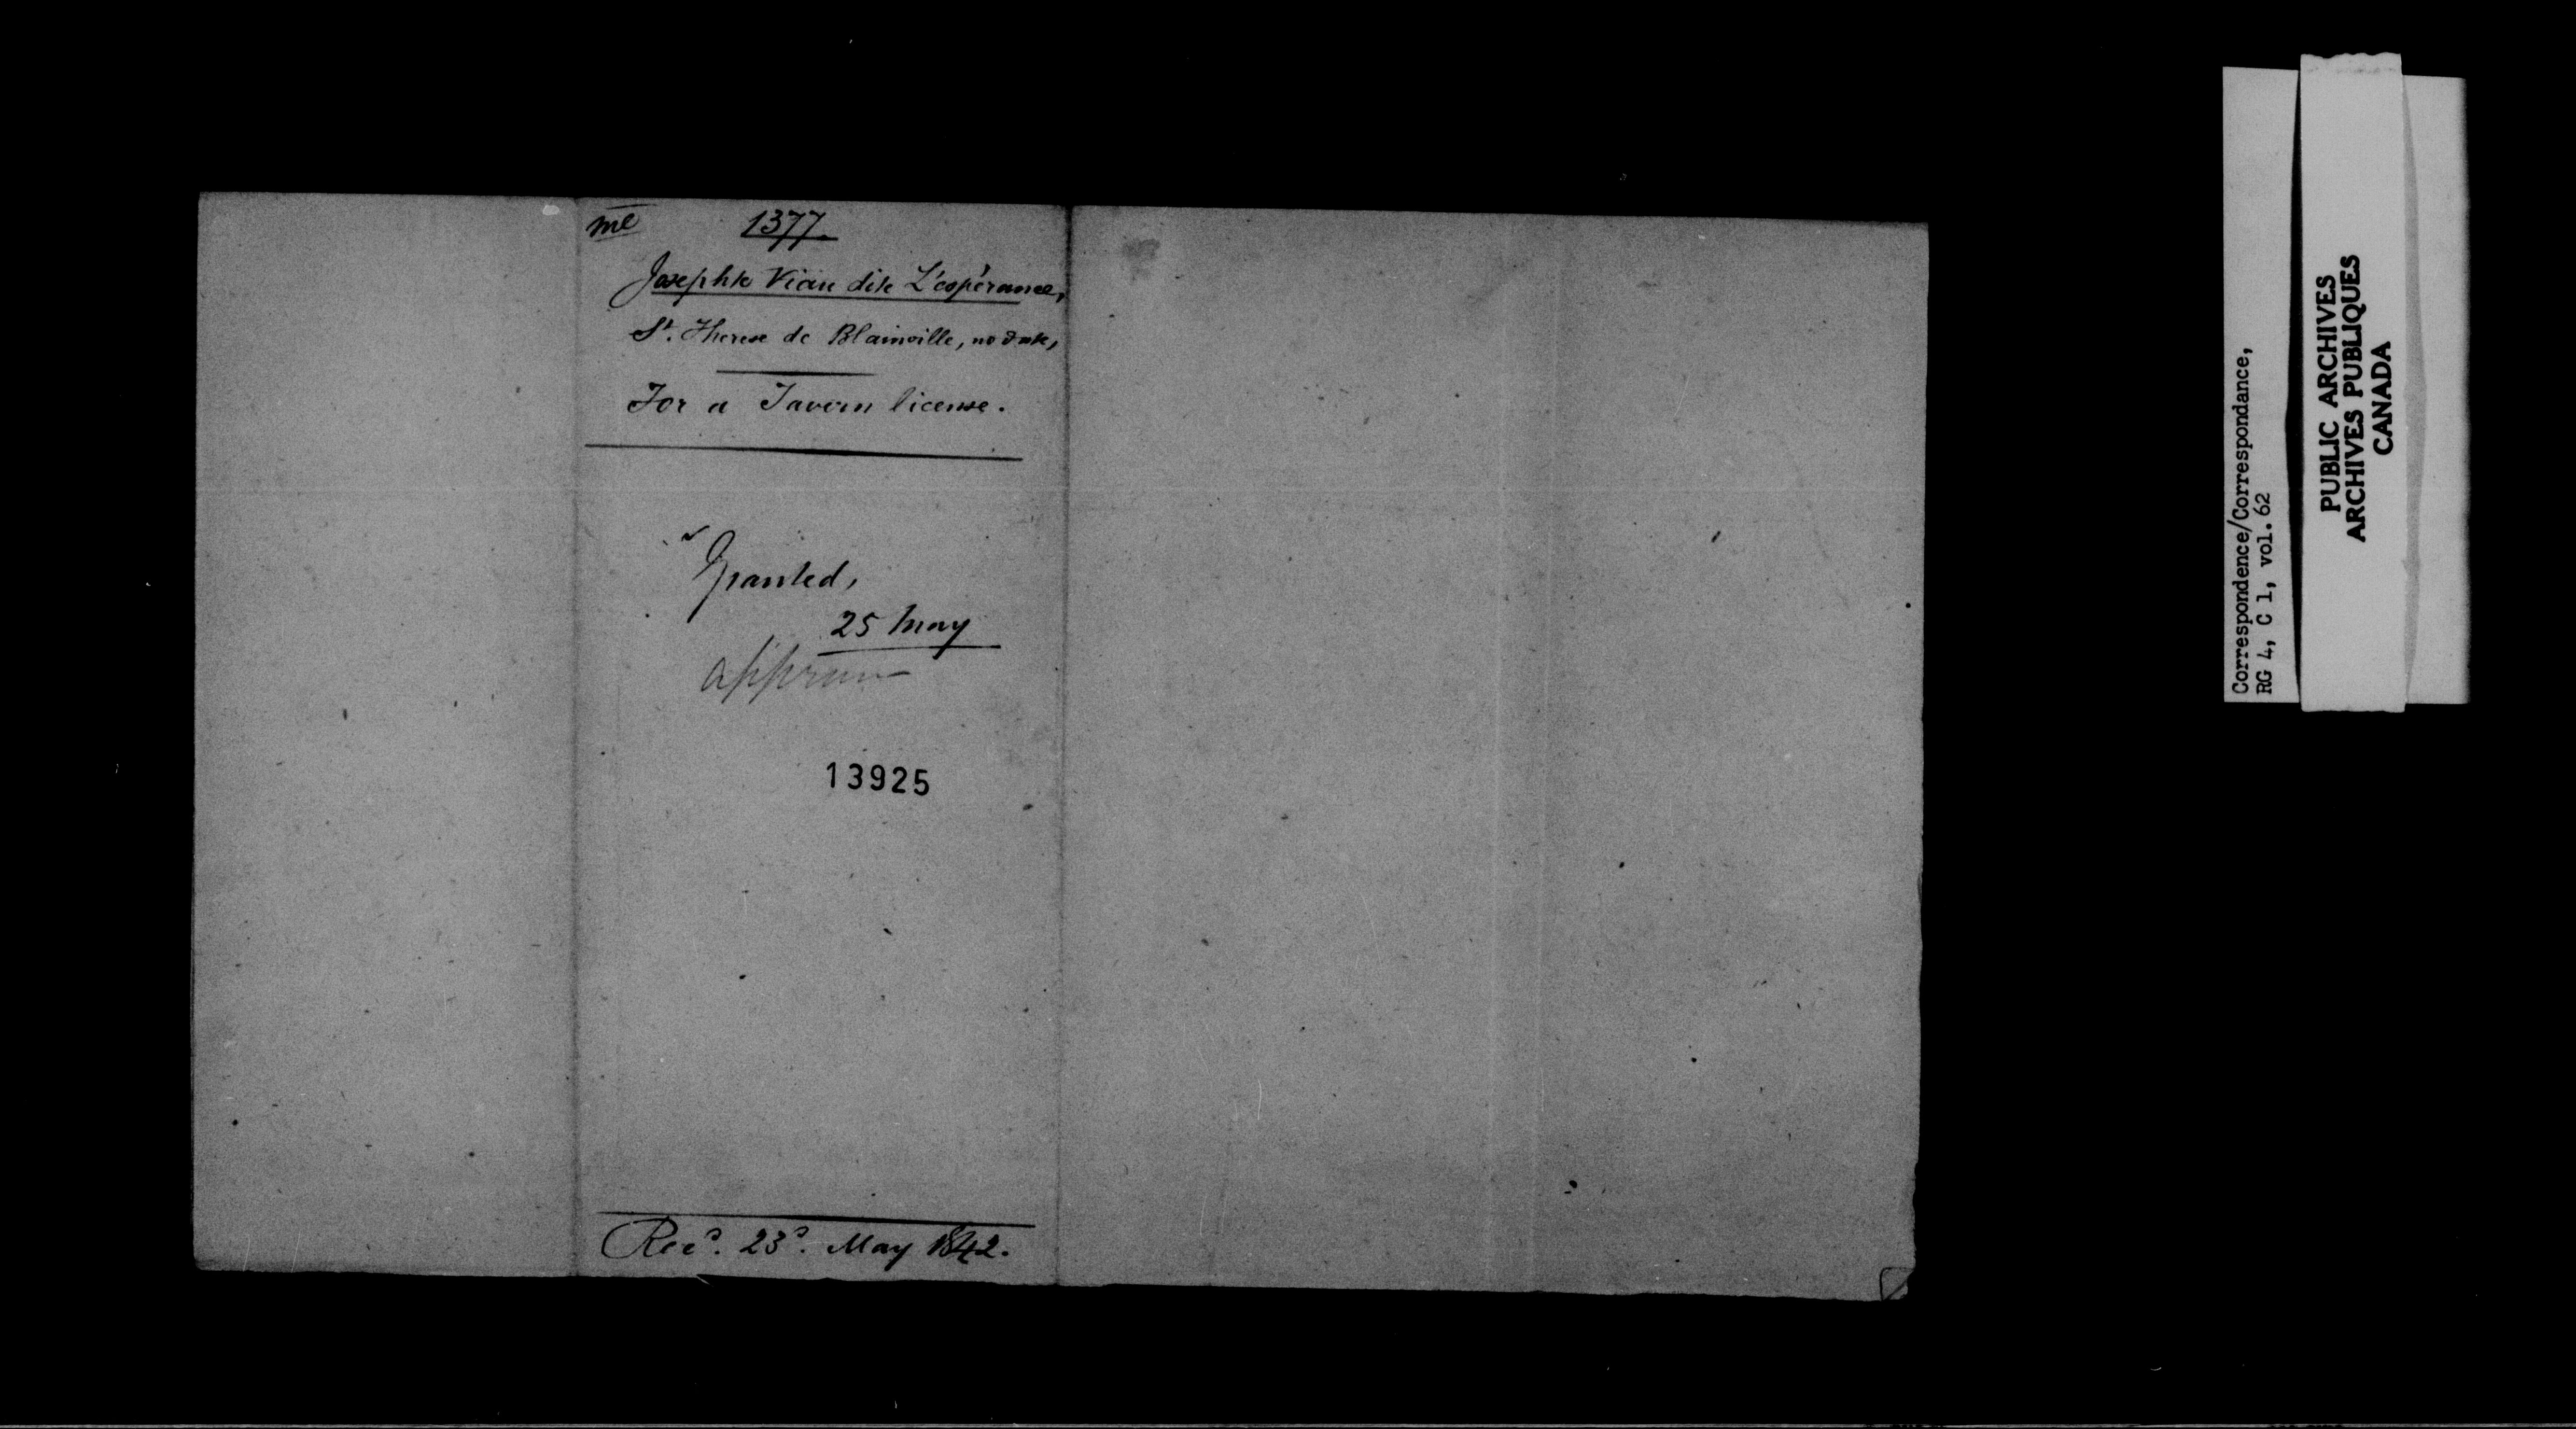 me 1377.
Josephte Viau dite L'espérance,
St. Therese de Blainville, no date,
For a Tavern license.
Granted,
25 May
13925
Recd. 23d. May 1842.
Correspondence/Correspondance,
RG 4, C 1, vol. 62
PUBLIC ARCHIVES
ARCHIVES PUBLIQUES
CANADA